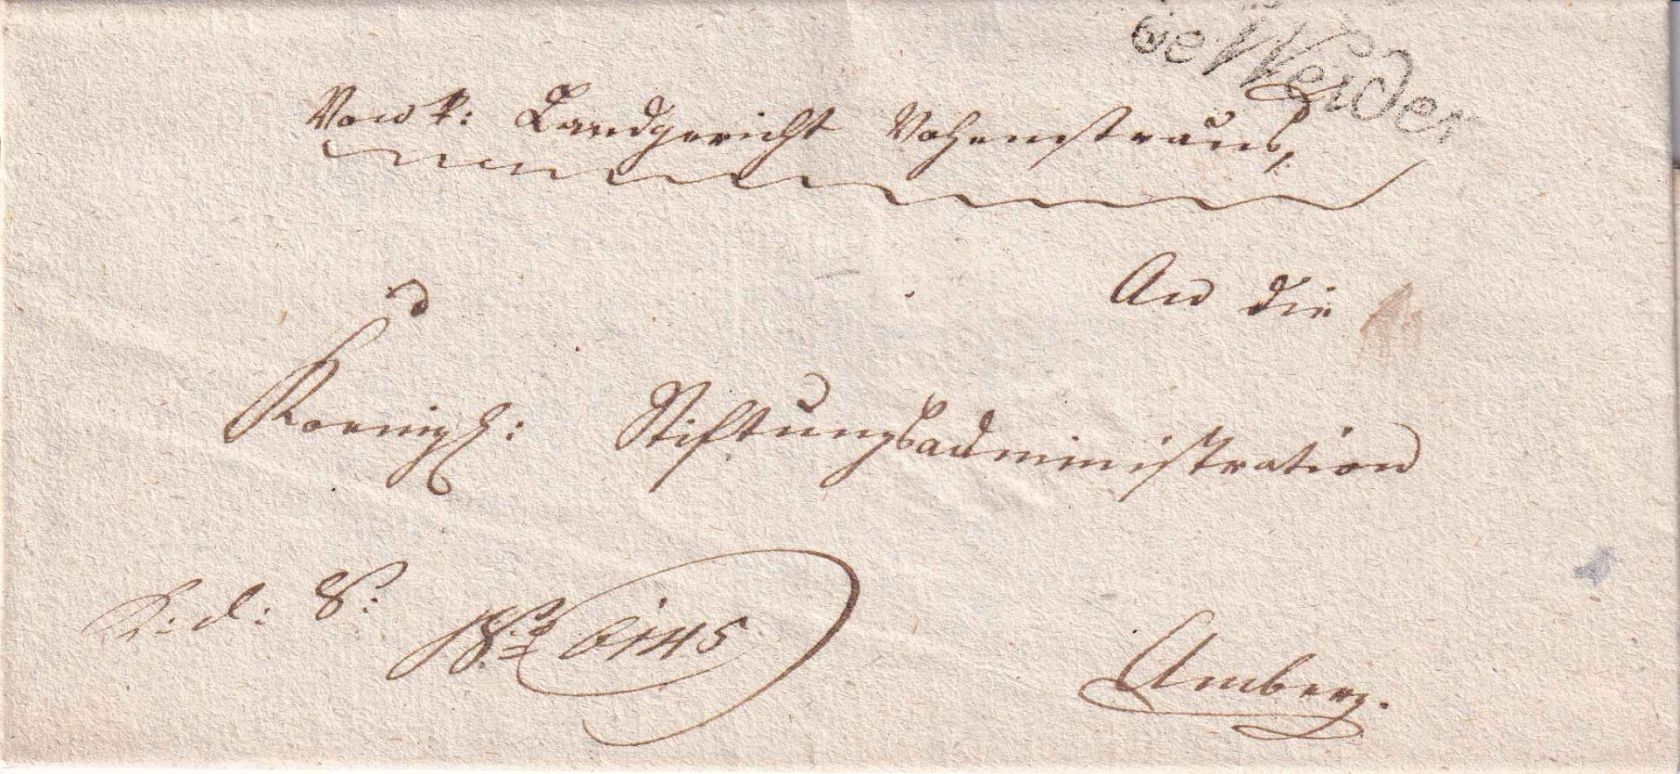 de Weiden
Vom k: Landgericht Vohenstrauß,
An die
Koenigl: Stiftungsadministration
R: d: S:
Nro 6145
Amberg.